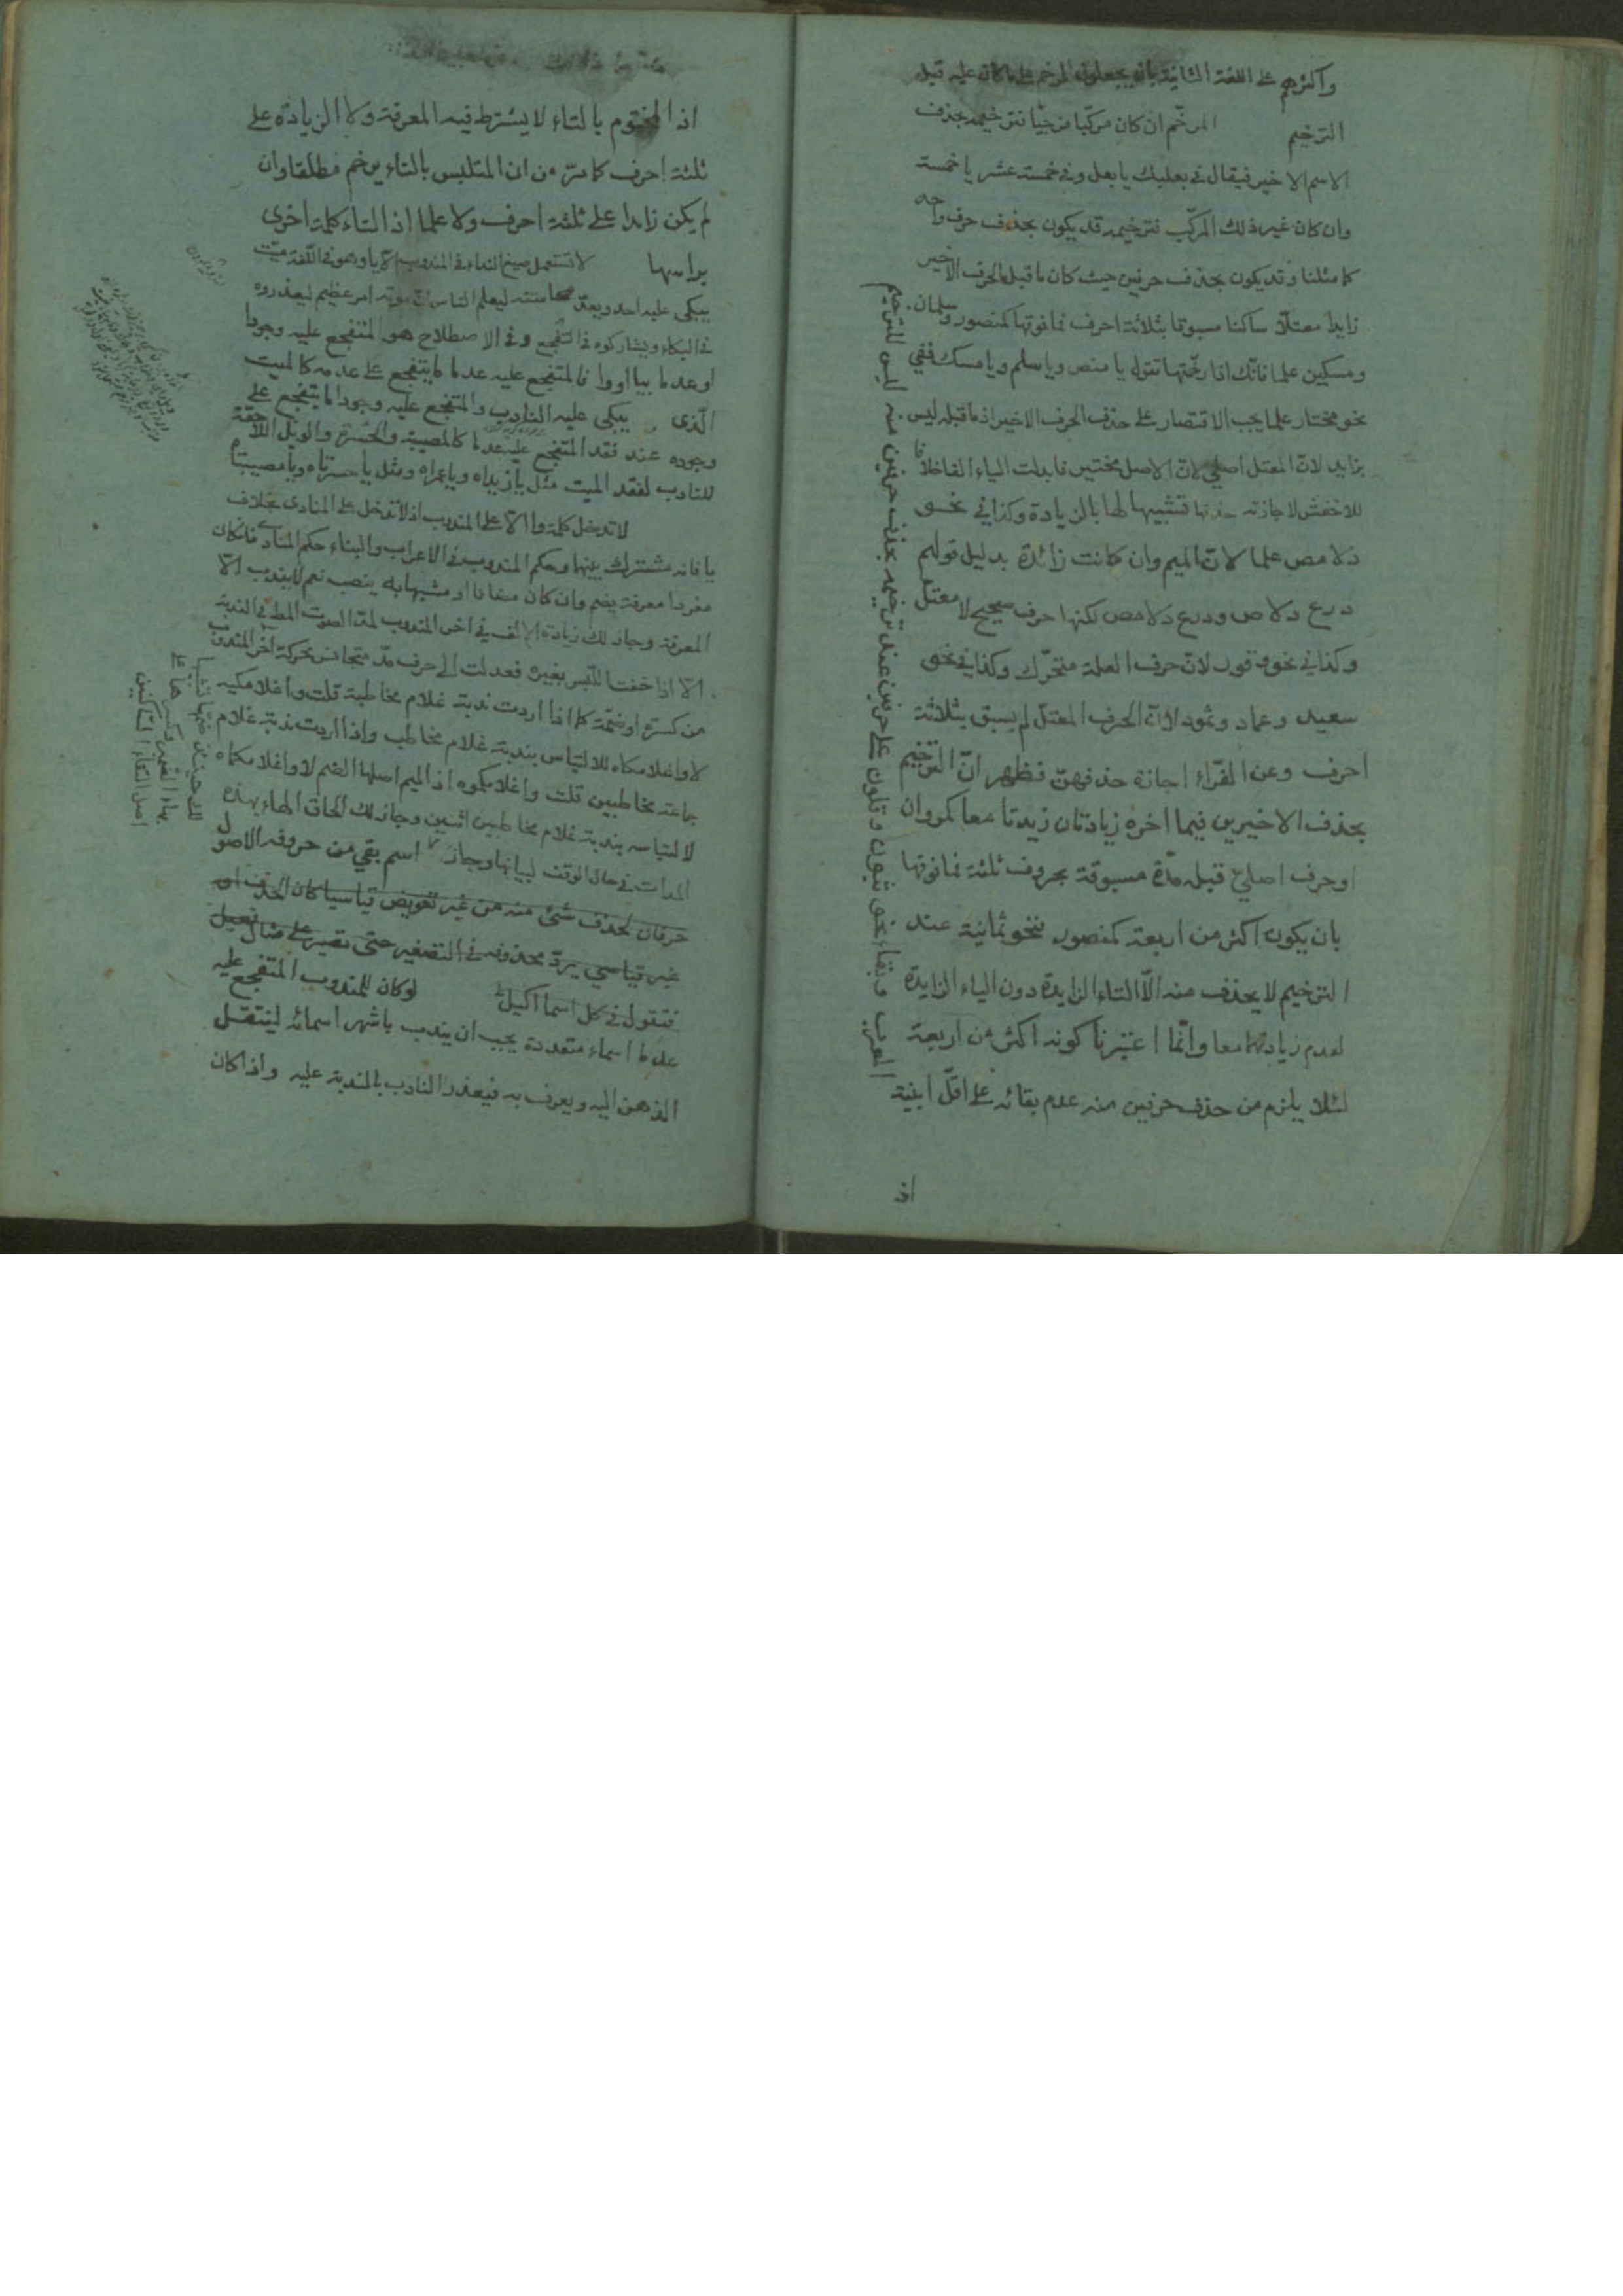 واكثرهم على اللغة الثانية بان يجعلون المرخم على ما كان عليه قبل
الترخيم المرخّم ان كان مركّبا مزجيّا فترخيمه بحذف
الاسم الاخير فيقال في بعلبك يا بعل وفي خمسة عشر يا خمسة
وان كان غير ذلك المركّب فترخيمه قد يكون بحذف حرف واحد
كما مثلنا وقد يكون بحذف حرفين حيث كان ما قبل الحرف الاخير
زايدا معتلّا ساكنا مسبوقا بثلاثة احرف فما فوقها كمنصور وسلمان
ومسكين علما فانّك اذا رخّمتها تقول يا منص ويا سلم ويا مسك ففي
نحو مختار علما يجب الاقتصار على حذف الحرف الاخير اذ ما قبله ليس
بزايد لانّ المعتل اصلي لانّ الاصل مختير فابدلت الياء الفا خلافا
للاخفش لاجازته حذفها تشبيها لها بالزيادة وكذا في نحو
دلامص علما لانّ الميم وان كانت زائدة بدليل قولهم
درع دلاص ودرع دلامص لكنها حرف صحيح لا معتل
وكذا في نحو قنور لانّ حرف العلة متحرّك وكذا في نحو
سعيد وعماد وثمود لانّ الحرف المعتل لم يسبق بثلاثة
احرف وعن الفرّاء اجازة حذفهن فظهر انّ الترخيم
بحذف الاخيرين فيما اخره زيادتان زيدتا معا كمروان
او حرف اصليّ قبله مدّة مسبوقة بحروف ثلثة فما فوقها
بان يكون اكثر من اربعة كمنصور فنحو ثمانية عند
الترخيم لا يحذف منه الّا التاء الزايدة دون الياء الزايدة
لعدم زيادتهما معا وانّما اعتبرنا كونه اكثر من اربعة
لئلا يلزم من حذف حرفين منه عدم بقائه على اقلّ ابنية
المعرب وبقاء نحو ثبون وقلون على حرفين عند ترخيمه بحذف حرفين منه ليس للترخيم
اذ
اذ المختوم بالتاء لا يشترط فيه المعرفة ولا الزيادة على
ثلثة احرف كما مرّ من ان المتلبس بالتاء يرخم مطلقا وان
لم يكن زايدا على ثلثة احرف ولا علما اذ التاء كلمة اخرى
براسها لا تستعمل صيغ النداء في المندوب الّا يا وهو في اللّغة ميّت
يبكى عليه احد ويعدّ محاسنه ليعلم الناس انّ موته امر عظيم ليعذروه
في البكاء ويشاركوه في التفجع وفي الاصطلاح هو المتفجع عليه وجودا
او عدما بيا او وا فالمتفجع عليه عدما ما يتفجع على عدمه كالميت
الّذى يبكى عليه النادب والمتفجع عليه وجودا ما يتفجع على
وجوده عند فقد المتفجع عليه عدما كالمصيبة والحسرة والويل اللاحقة
للنادب لفقد الميت مثل يا زيداه ويا عمراه ومثل يا حسرتاه ويا مصيبتا
لا تدخل كلمة وا الّا على المندوب اذ لا تدخل على المنادى بخلاف
يا فانه مشترك بينهما وحكم المندوب في الاعراب والبناء حكم المنادى فان كان
مفردا معرفة يضم وان كان مضافا او مشبها به ينصب نعم لا يندب الّا
المعرفة وجاز لك زيادة الالف في اخر المندوب لمدّ الصوت المط في الندبة
الّا اذا خفت اللّبس بغيره فعدلت الى حرف مدّ متجانس بحركة آخر المندوب
من كسرة او ضمّة كما اذا اردت ندبة غلام مخاطبة قلت واغلامكيه
لا واغلامكاه للالتباس بندبة غلام مخاطب واذا اردت ندبة غلام
جماعة مخاطبين قلت واغلامكموه اذ الميم اصلها الضم لا واغلامكماه
لالتباسه بندبة غلام مخاطبين اثنين وجاز لك الحاق الهاء بهذه
المدات في حال الوقف لبيانها وجاز اسم بقي من حروفه الاصول
حرفان لحذف شئ منه من غير تعويض قياسيا كان الحذف او
غير قياسي يردّ محذوفه في التصغير حتى تصير على مثال فعيل
فتقول في كل اسما اكيل لو كان للمندوب المتفجع عليه
عدما اسماء متعددة يجب ان يندب باشهر اسمائه لينتقل
الذهن اليه ويعرف به فيعذر النادب بالندبة عليه واذا كان